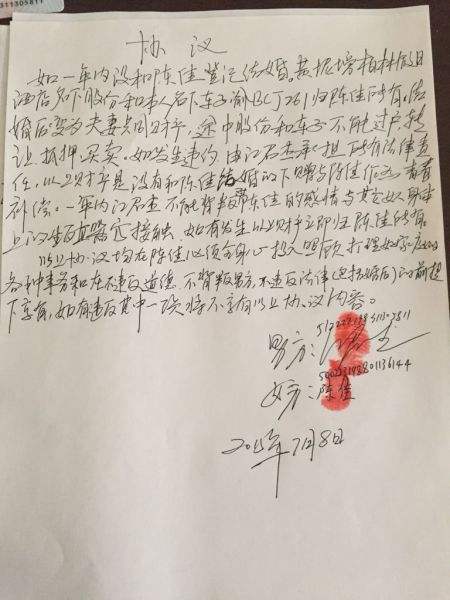 311305811
协议
如一年内没和陈佳登记结婚。其把培柏林假日
酒店名下股份和本人名下车子渝BCJ261归陈佳所有。结
婚后变为夫妻共同财产，途中股份和车子不能过户、转
让、抵押、买卖。如发生违约由江君杰承担所有法律责
任，以上财产是没有和陈佳结婚的下赐与陈佳作为青春
补偿。一年内江君杰不能背叛陈佳的感情与其它女人身体
上汉生直器官接触，如有发生以上财产立即归陈佳所有。
以上协议均在陈佳必须全身心投入照顾打理好家庭的
各种事务和在不违反道德、不背叛男方，不违反法律（包括婚后）的前提
下享有，如有违反其中一项将不享有以上协议内容。
男方：
女方：陈佳
2015年7月8日